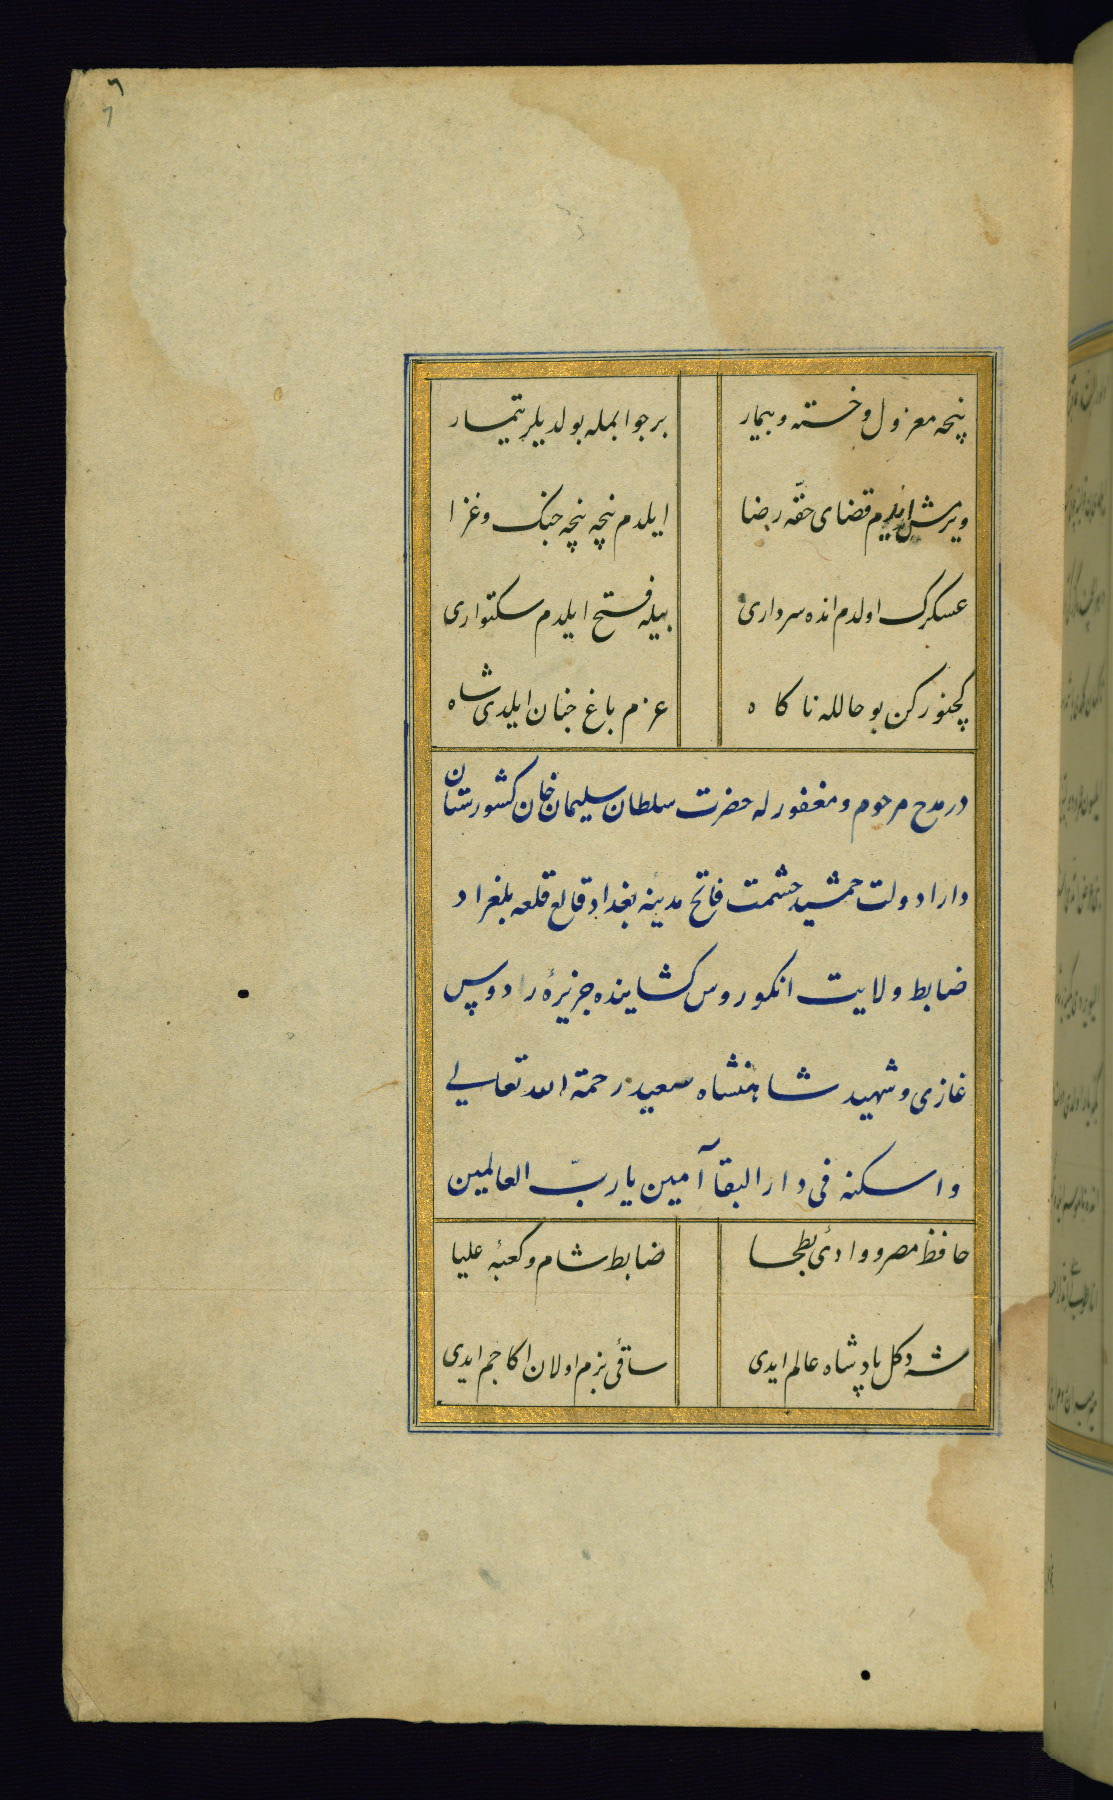 ٦
نیجه معزول و خسته و بیمار برجوایمله بولدیلر تیمار
ویرمش ایدم قضای حقّه رضا ایلدم نیچه نیچه جنک و غزا
عسکرک اولدم انده سرداری بیله فتح ایلدم سکتواری
کچنورکن بو حالله ناکاه عزم باغ جنان ایلدی شاه
در مدح مرحوم و مغفور له حضرت سلطان سلیمان خان کشورستان
دارا دولت جمشید حشمت فاتح مدینه بغداد قالع قلعه بلغراد
ضابط ولایت انکوروس کشاینده جزیرهٔ رادوس
غازی و شهید شاهنشاه سعید رحمة الله تعالی
واسکنه فی دار البقا آمین یا ربّ العالمین
حافظ مصر و وادئ بطحا ضابط شام و کعبهٔ علیا
شه دکل پادشاه عالم ایدی ساقئ بزم اولان اکا جم ایدی